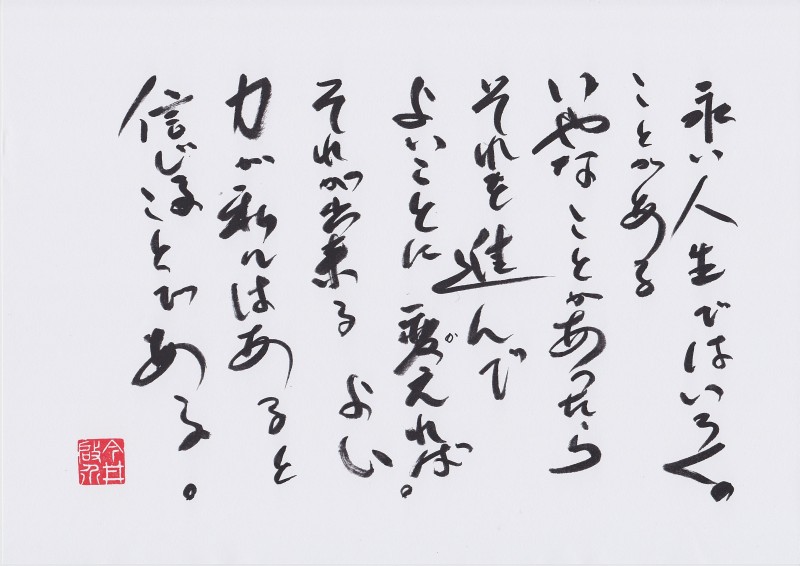 永い人生ではいろ〱の
ことがある
いやなことがあったら
それを進んで
よいことに変えれば。
それが出来る よい
力が私にはあると
信じることである。
今井